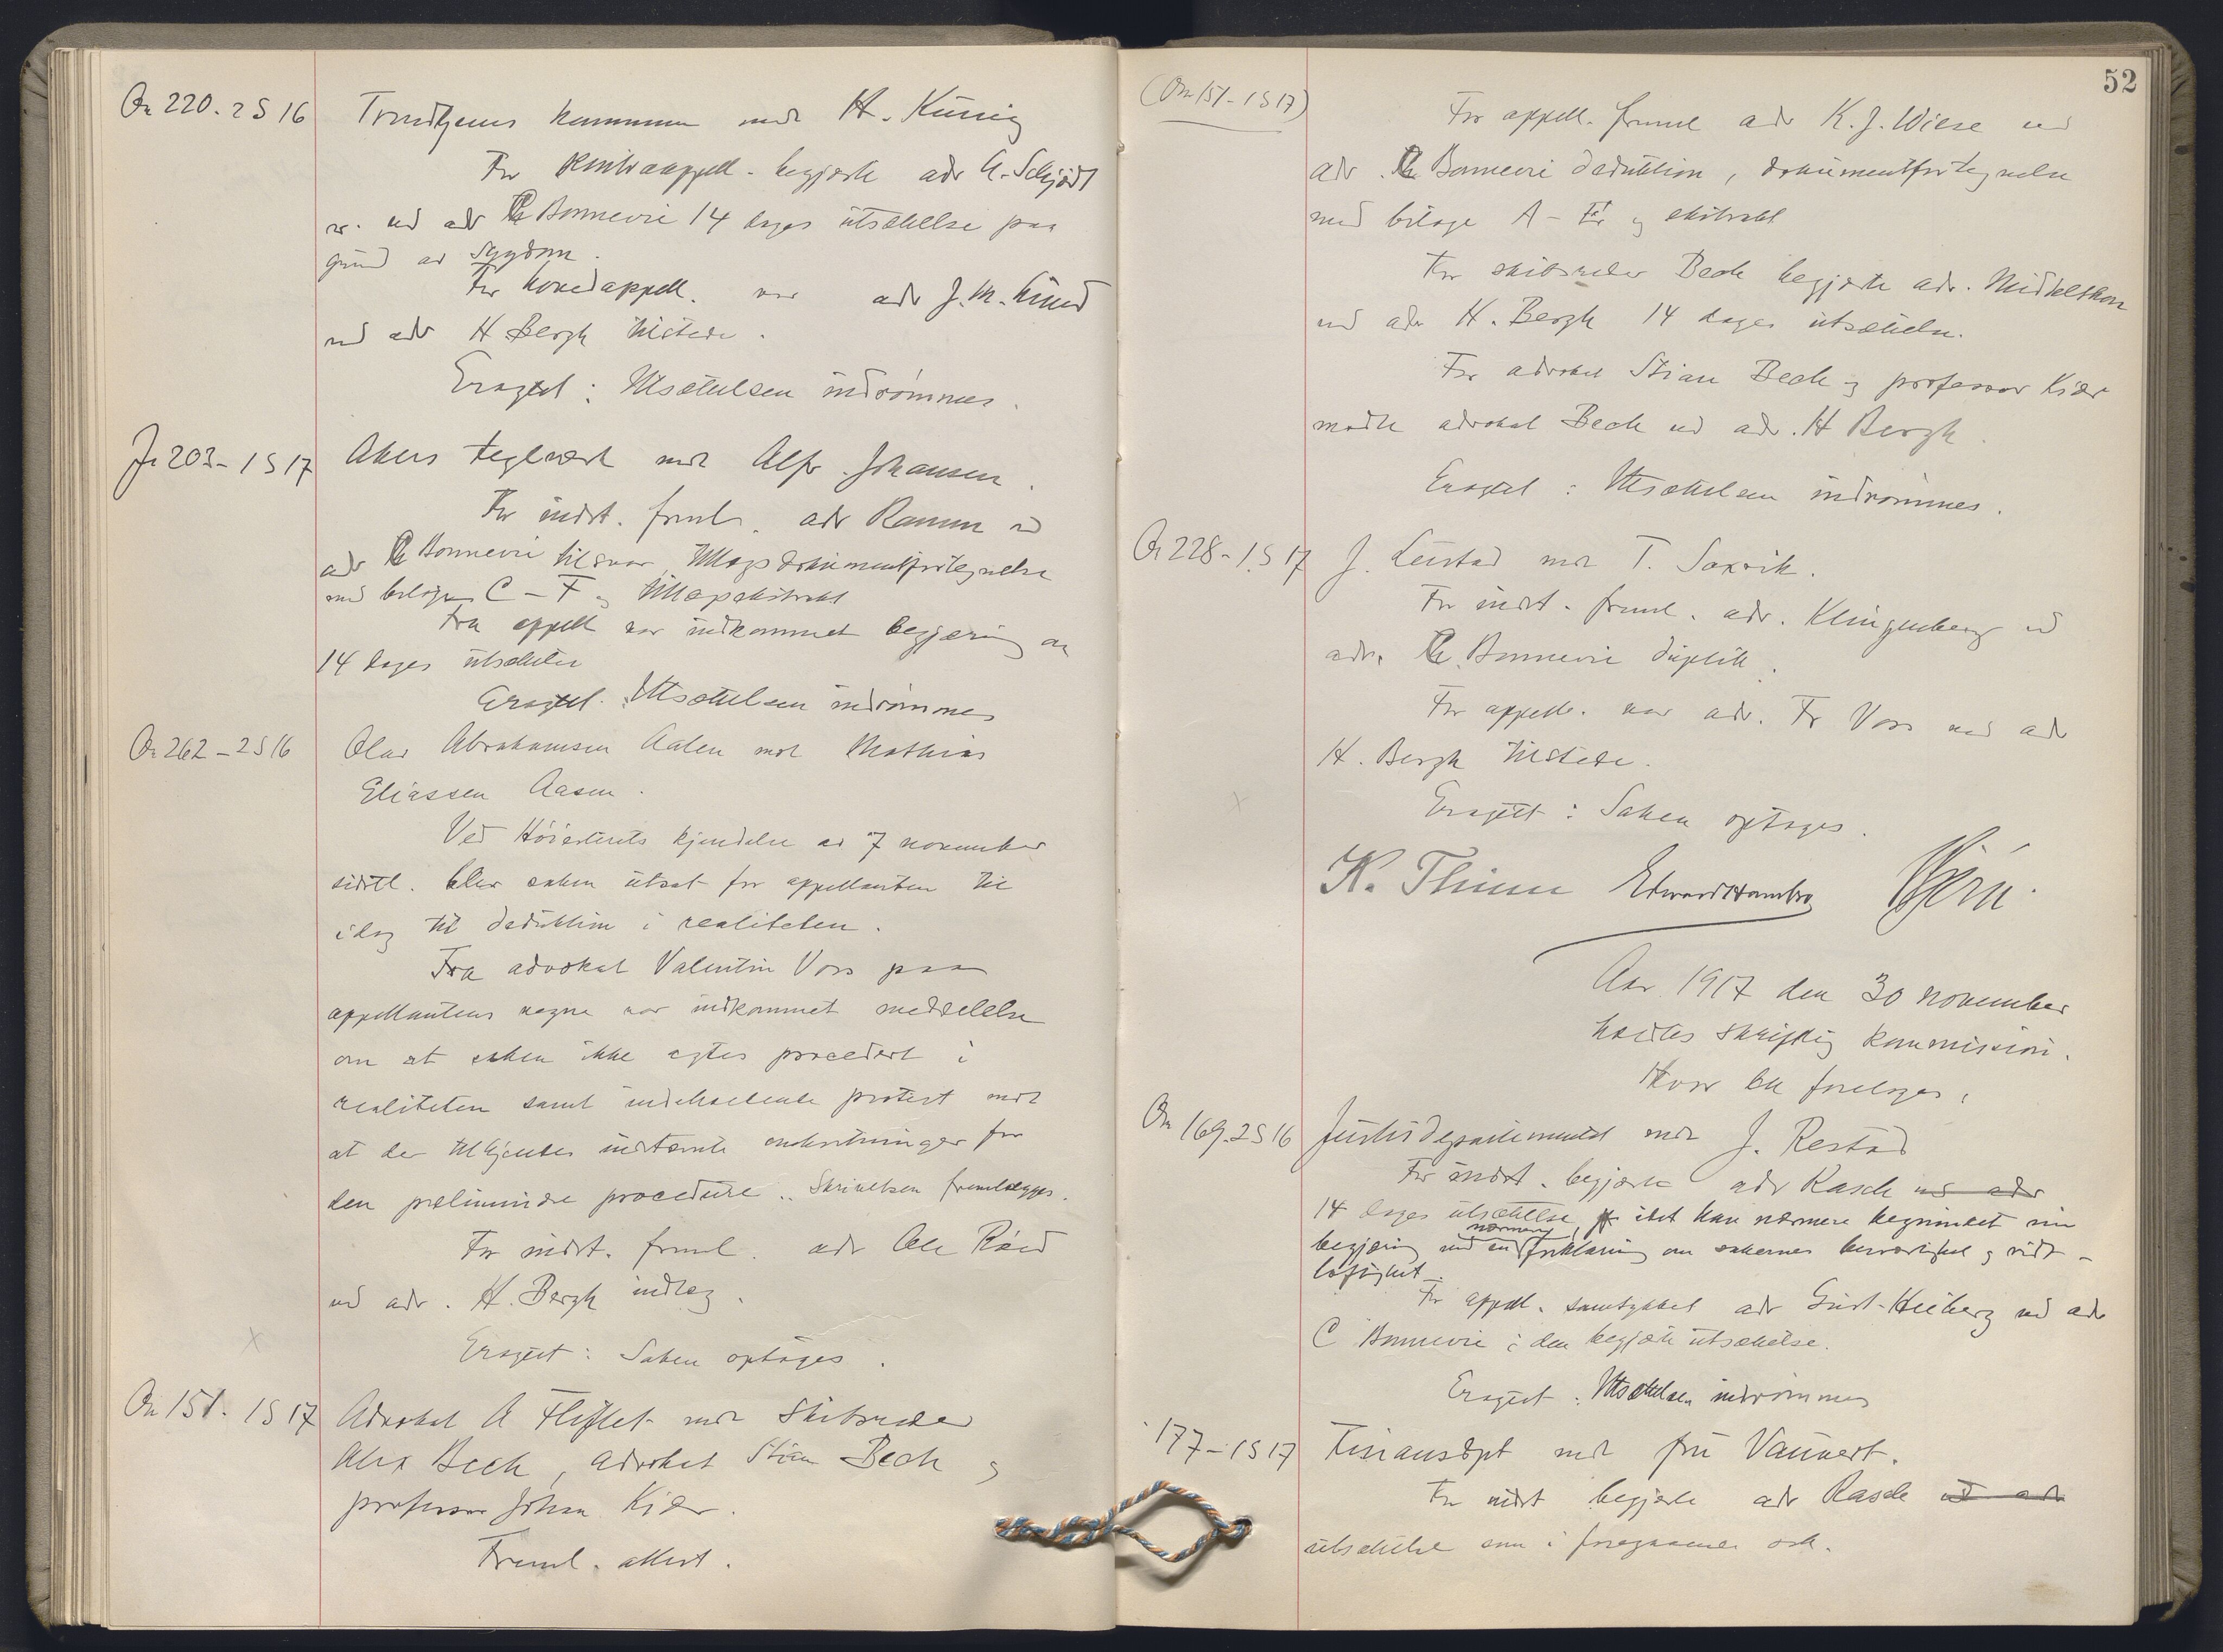 On 220. 2 S 16
Trondhjems kommune mot H. Künig
For kontraappell. begjærte adv A. Schjødt
ved adv Chr Bonnevie 14 dages utsættelse paa
grund av sygdom.
For hovedappell. var adv J. M. Lund
ved adv H Bergh tilstede.
Eragtet: Utsættelsen indrømmes.
Jr 203 - 1 S 17
Akers teglverk mot Alfr. Johansen.
For indst. freml. adv Ramm ved
adv Chr Bonnevie tilsvar, tillægsdokumentfortegnelse
med bilage C - F og tillægsekstrakt
Fra appell var indkommet begjæring om
14 dages utsættelse
Eragtet: Utsættelsen indrømmes
On 262 - 2 S 16
Olav Abrahamsen Aalen mot Mathias
Eliassen Aasen.
Ved Høiesterets kjendelse av 7 november
sidstl. blev saken utsat for appellanten til
idag til deduktion i realiteten.
Fra advokat Valentin Voss paa
appellantens vegne var indkommet meddelelse
om at saken ikke agtes procedert i
realiteten samt indeholdende protest mot
at der tilkjendes indstevnte omkostninger for
den præliminære procedure. Skrivelsen fremlægges.
For indst. freml. adv Ole Røed
ved adv. H. Bergh indlæg.
Eragtet: Saken optages.
On 151. 1 S 17
Advokat A Fliflet mot skibsreder
Alex Bech, advokat Stian Bech og
professor Johan Kiær.
Freml. attest.
52
(On 151 - 1 S 17)
For appell. freml adv K. J. Wiese ved
adv. Chr Bonnevie deduktion, dokumentfortegnelse
med bilage A - og ekstrakt
For skibsreder Bech begjærte adv. Middelthon
ved adv H. Bergh 14 dages utsættelse.
For advokat Stian Bech og professor Kiær
mødte advokat Bech ved adv. H Bergh.
Eragtet: Utsættelsen indrømmes.
On 228 - 1 S 17
J. Leistad mot T. Saxvik.
For indst. freml. adv. Klingenberg ved
adv. Chr. Bonnevie duplik.
For appell. var adv. Fr Voss ved adv
H. Bergh tilstede.
Eragtet: Saken optages.
K. Thinn Edvard Hambro
Aar 1917 den 30 november
holdtes skriftlig kommission.
Hvor blev foretages:
On 169. 2 S 16
Justisdepartementet mot J. Restad
For indst. begjærte adv Rasch ved adv
14 dages utsættelse, idet han nærmere begrundet sin
nærmere
begjæring med en forklaring om sakernes beskaffenhet og vidt-
løftighet.
For appell. samtykket adv Gust. Heiberg ved adv
C Bonnevie i den begjærte utsættelse.
Eragtet: Utsættelsen indrømmes
177 - 1 S 17
Finansdpt mot fru Vaumert.
For indst begjærte adv Rasch ved adv
utsættelse som i foregaaende sak.